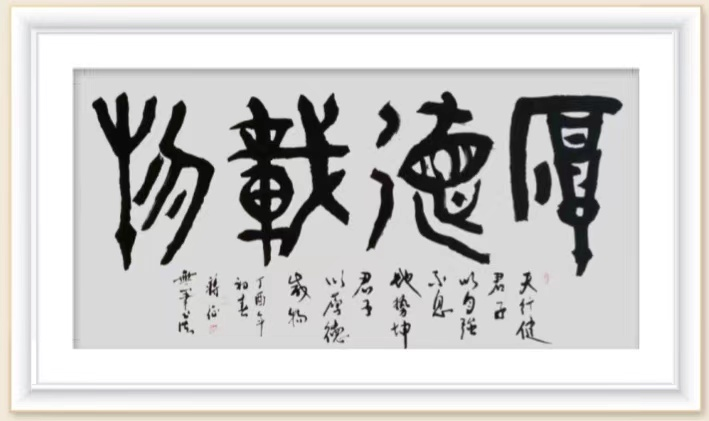 厚德載物
天行健
君子
以自强
不息
地勢坤
君子
以厚德
載物
丁酉年
初春